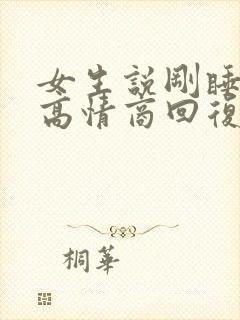 女生說剛睡
高情商回復
桐華